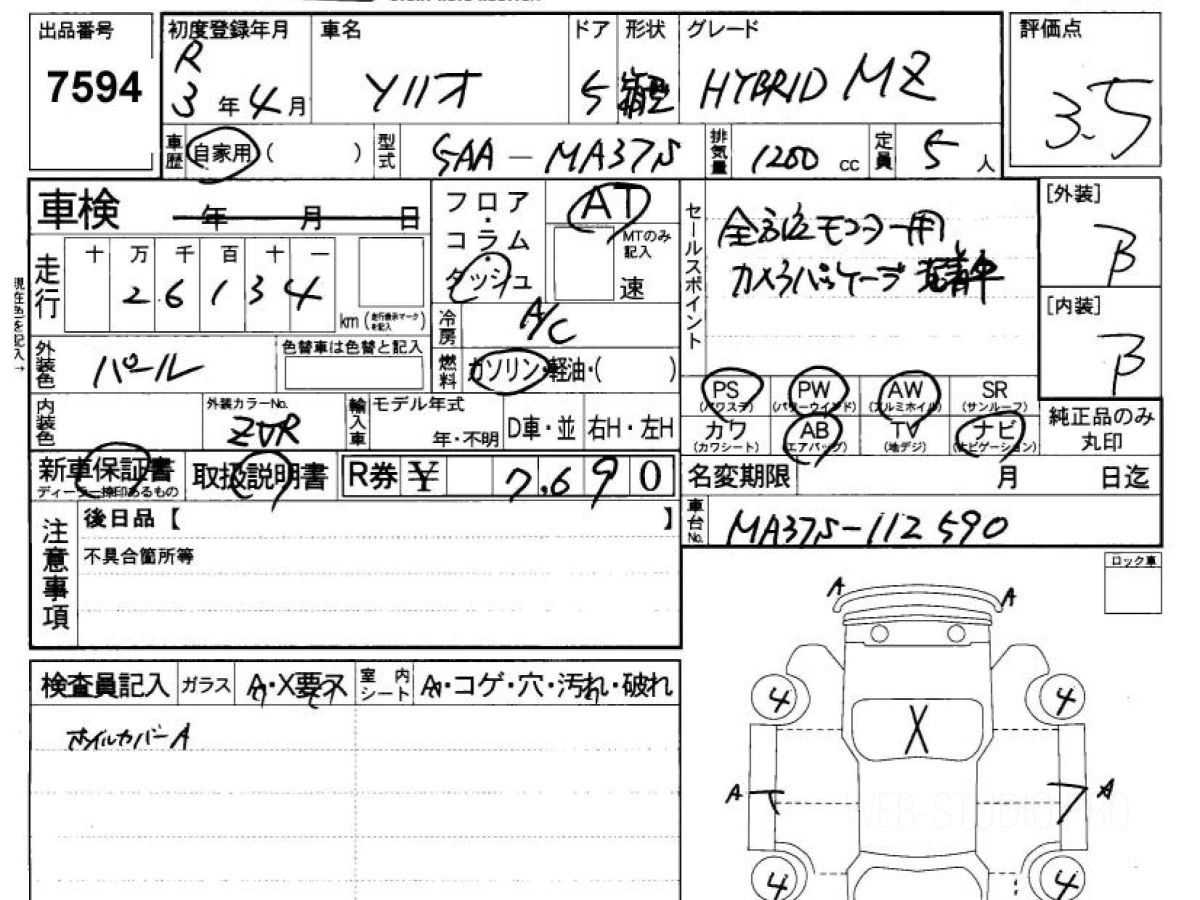 出品番号
7594
初度登録年月
R
3 年 4 月
車名
ソリオ
ドア
5
形状
グレード
HYBRID MZ
評価点
3.5
車歴
自家用 ( )
型式
5AA-MA37S
排気量
1200 cc
定員
5 人
車検
年 月 日
走行
十 万 千 百 十 一
2 6 1 3 4
km (走行表示マークを記入)
現在色を記入→
フロア・コラム・ダッシュ
AT
MTのみ記入
速
冷房
A/C
燃料
ガソリン・軽油・( )
セールスポイント
全方位モニター用
カメラパッケージ装着車
[外装]
B
[内装]
B
外装色
パール
色替車は色替と記入
内装色
外装カラーNo.
ZVR
輸入車
モデル年式
年・不明
D車・並
右H・左H
PS
(パワステ)
PW
(パワーウインド)
AW
(アルミホイル)
SR
(サンルーフ)
カワ
(カワシート)
AB
(エアバッグ)
TV
(地デジ)
ナビ
(ナビゲーション)
純正品のみ
丸印
新車保証書
ディーラー捺印あるもの
取扱説明書
R券 ¥ 7,690
名変期限 月 日迄
車台No.
MA37S-112590
注意事項
後日品【 】
不具合箇所等
ロック車
検査員記入
ガラス
A・X要ス
室内シート
A・コゲ・穴・汚れ・破れ
ホイルカバーA
A
A
4
4
X
A
A
4
4
WEB-STUDIO.PRO